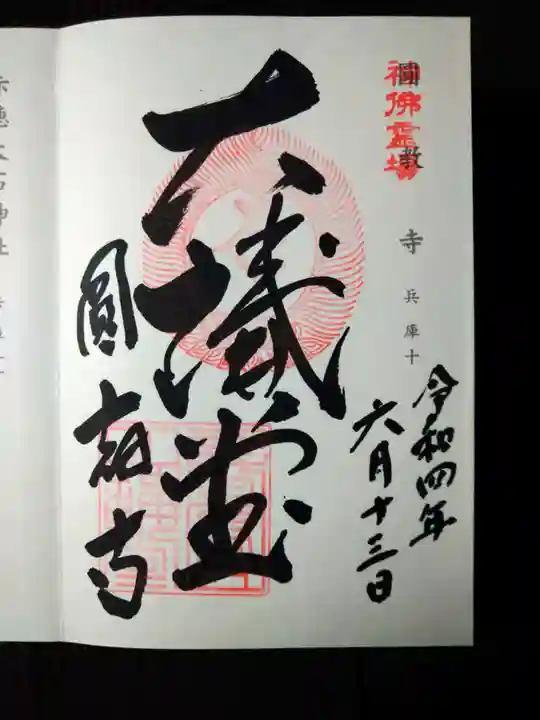 神佛霊場
圓教寺 兵庫十
令和四年
六月十三日
大講堂
圓教寺
赤穂大石神社